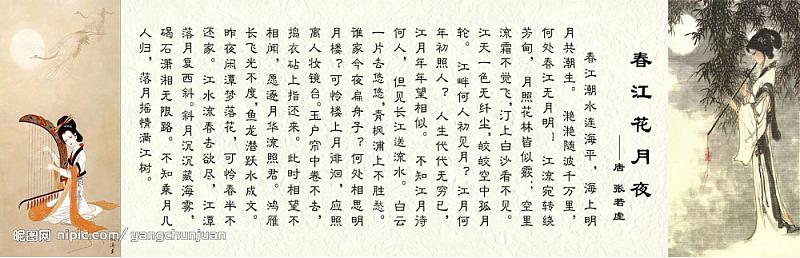 春江花月夜
——唐 张若虚
春江潮水连海平，海上明
月共潮生。 滟滟随波千万里，
何处春江无月明！ 江流宛转绕
芳甸，月照花林皆似霰；空里
流霜不觉飞，汀上白沙看不见。
江天一色无纤尘，皎皎空中孤月
轮。江畔何人初见月？江月何
年初照人？ 人生代代无穷已，
江月年年望相似。 不知江月待
何人， 但见长江送流水。 白云
一片去悠悠，青枫浦上不胜愁。
谁家今夜扁舟子？何处相思明
月楼？可怜楼上月徘徊，应照
离人妆镜台。玉户帘中卷不去，
捣衣砧上拂还来。此时相望不
相闻，愿逐月华流照君。鸿雁
长飞光不度，鱼龙潜跃水成文。
昨夜闲潭梦落花，可怜春半不
还家。江水流春去欲尽，江潭
落月复西斜。斜月沉沉藏海雾，
碣石潇湘无限路。不知乘月几
人归，落月摇情满江树。
昵图网 nipic.com/yangchunjuan